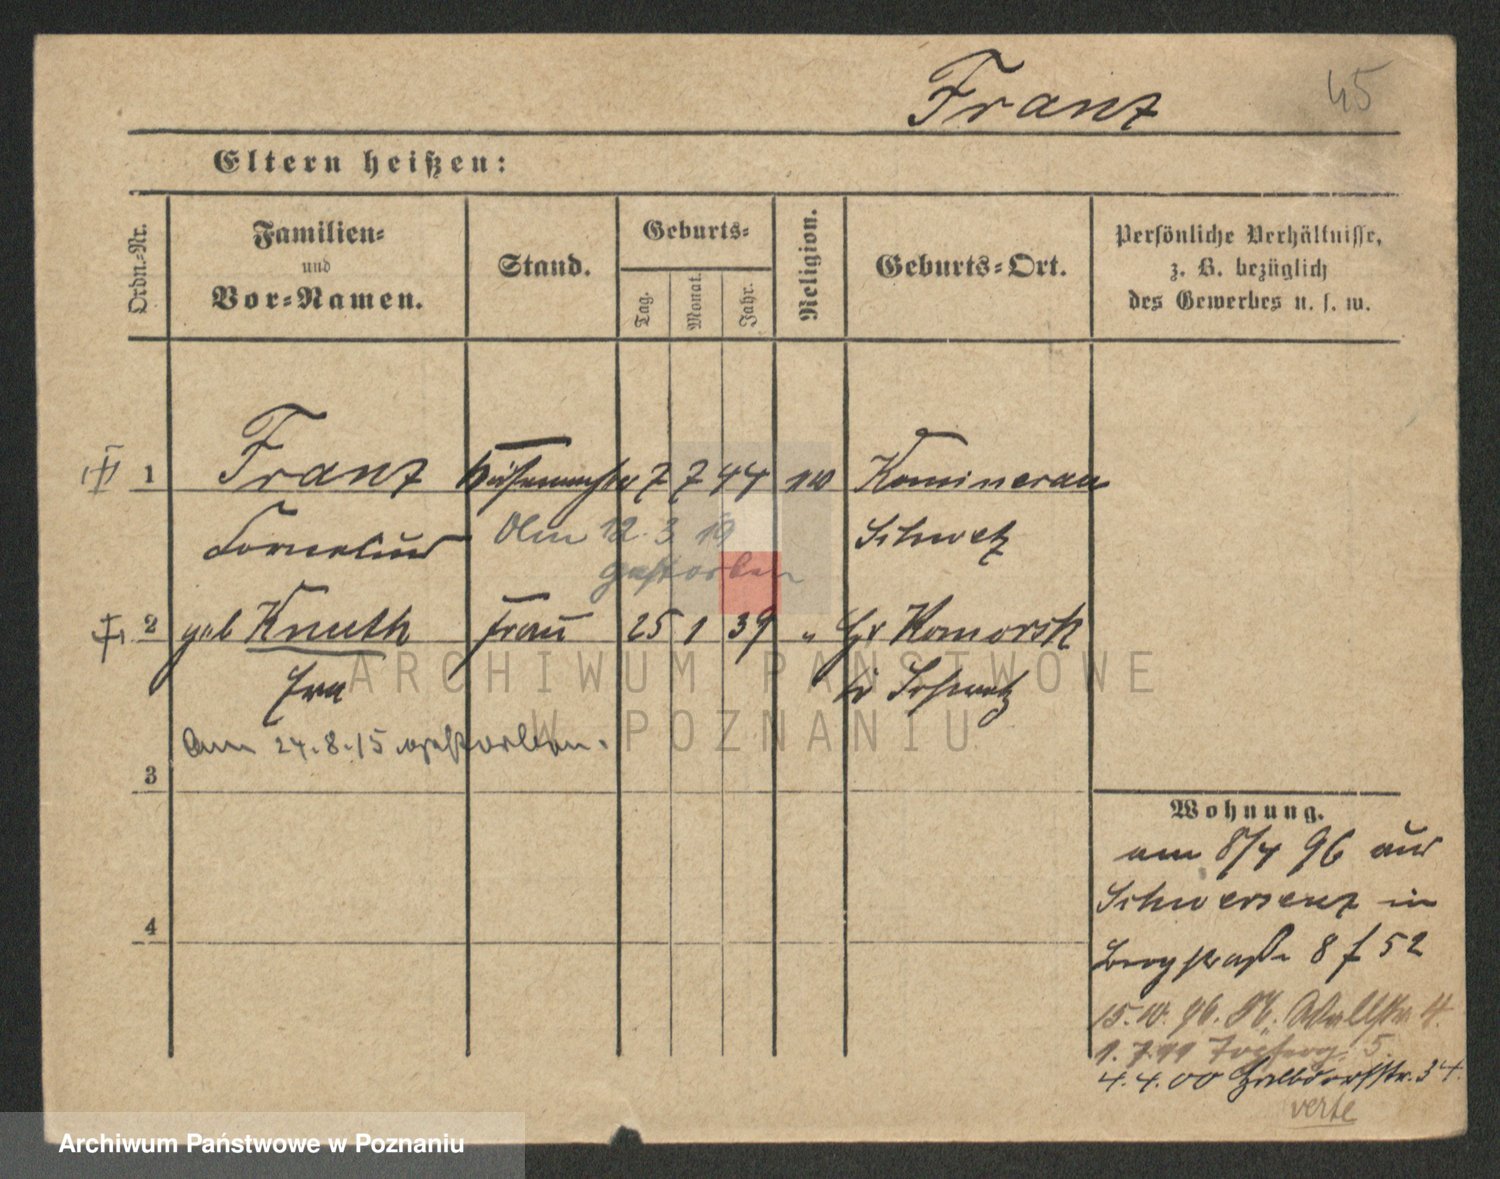 Franz 45
Eltern heißen:
Ordn.-Nr.
Familien-
und
Vor-Namen.
Stand.
Geburts-
Tag.
Monat.
Jahr.
Religion.
Geburts-Ort.
Persönliche Verhältnisse,
z. B. bezüglich
des Gewerbes u. s. w.
1 Franz 7 7 44 Kominerau
Cornelius Am 12. 3 19 Schwetz
gestorben
2 geb Knuth Frau 25 1 39 " Gr Komorsk
Eva Schwetz
ARCHIWUM PAŃSTWOWE
W POZNANIU
am 24.8.15 gestorben.
3
Wohnung.
am 8/4 96 aus
Schwersenz in
4
Bergstraße 8 f 52
15.10.96. Wallstr. 4.
1.7.99 5.
4.4.00 Halbdorfstr. 34.
verte
Archiwum Państwowe w Poznaniu